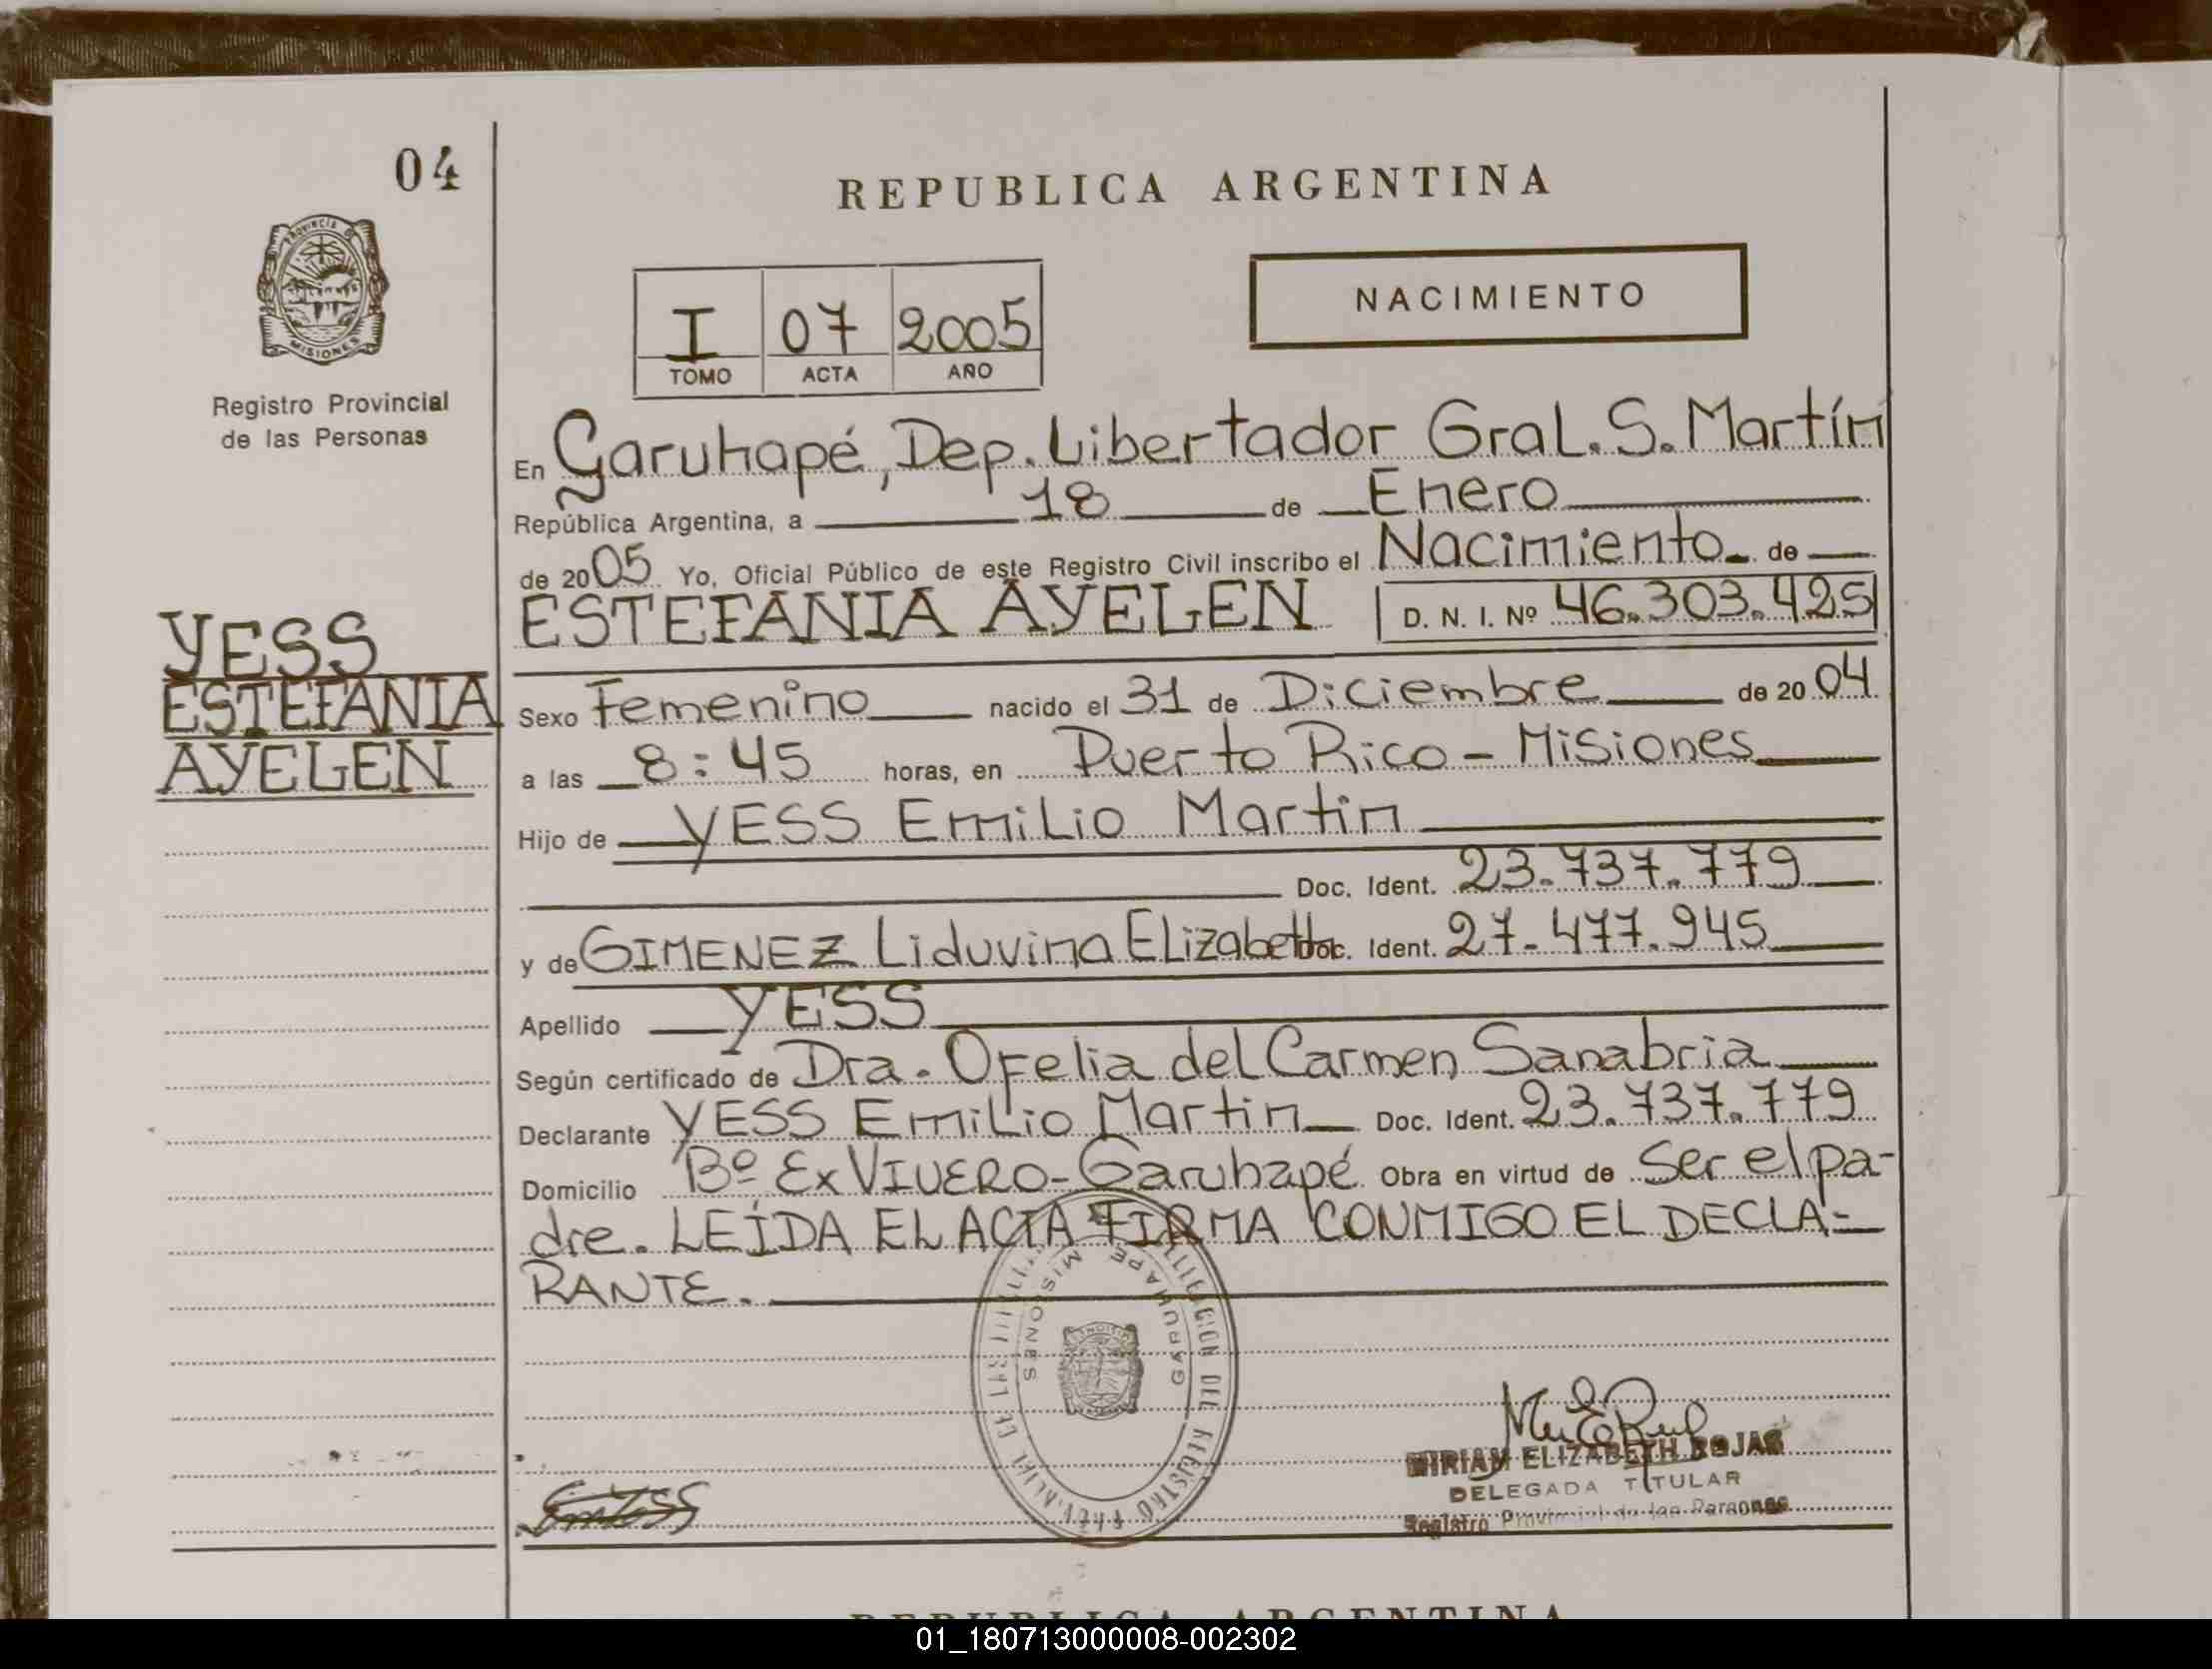 04
REPUBLICA ARGENTINA
PROVINCIA DE
MISIONES
Registro Provincial
de las Personas
I 07 2005
TOMO ACTA AÑO
NACIMIENTO
En Garuhapé, Dep. Libertador Gral. S. Martín
República Argentina, a 18 de Enero
de 2005 Yo, Oficial Público de este Registro Civil inscribo el Nacimiento de
ESTEFANIA AYELEN D. N. I. Nº 46.303.425
YESS
ESTEFANIA
AYELEN
Sexo Femenino nacido el 31 de Diciembre de 2004
a las 8:45 horas, en Puerto Rico - Misiones
Hijo de YESS Emilio Martin
Doc. Ident. 23.737.779
y de GIMENEZ Liduvina Elizabeth Doc. Ident. 27.477.945
Apellido YESS
Según certificado de Dra. Ofelia del Carmen Sanabria
Declarante YESS Emilio Martin Doc. Ident. 23.737.779
Domicilio Bº Ex VIVERO - Garuhapé Obra en virtud de Ser el pa-
dre. LEÍDA EL ACTA FIRMA CONMIGO EL DECLA-
RANTE.
GARUHAPE
MISIONES
MIRIAM ELIZABETH ROJAS
DELEGADA TITULAR
Registro Provincial de las Personas
REPUBLICA ARGENTINA
01_180713000008-002302